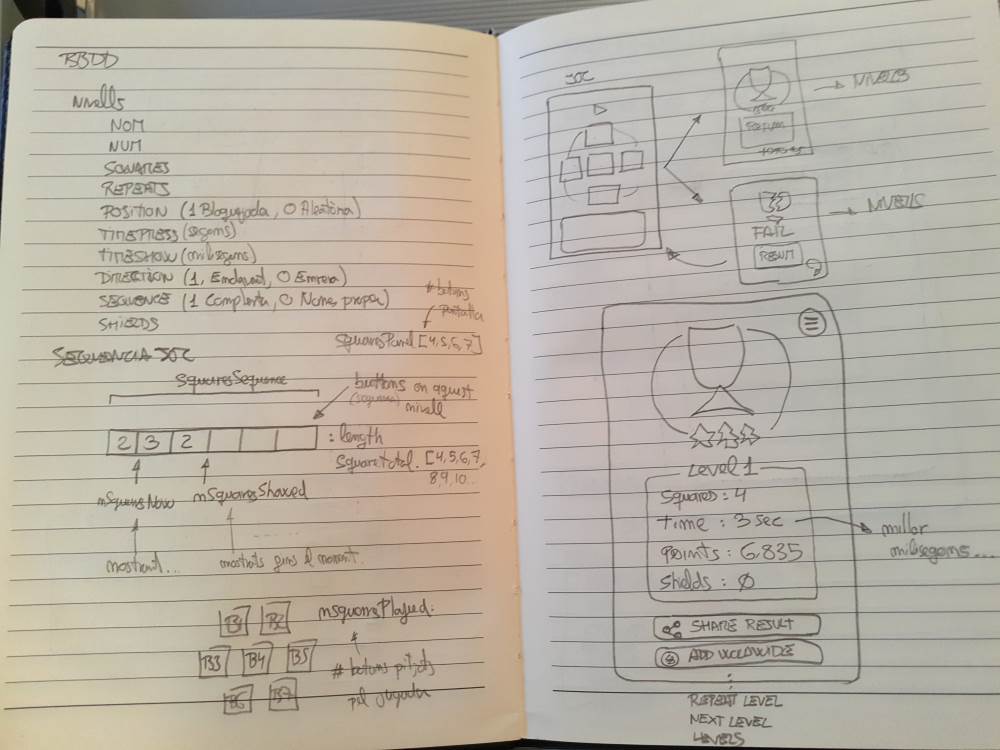 BBDD
Nivells
NOM
NUM
SQUARES
REPEATS
POSITION (1 Bloquejada, 0 Aleatòria)
TIMEPRESS (segons)
TIMESHOW (milisegons)
DIRECTION (1, Endavant, 0 Enrera)
SEQUENCE (1 Completa, 0 Només propera)
SHIELDS
# botons
pantalla
squaresPanel [4,5,6,7]
SEQUENCIA JOC
squaresSequence
buttons en aquest
nivell
2 3 2
: length
squaresTotal. [4,5,6,7,
8,9,10...
mSquaresNow
mSquaresShowed
mostrant...
mostrats fins el moment.
B1 B2
B3 B4 B5
B6 B7
mSquaresPlayed.
# botons pitjats
pel jugador
JOC
NIVELLS
RETURN
NIVELLS
FAIL
RETURN
Level 1
Squares : 4
time : 3 sec
points : 6.835
shields : Ø
millor
milisegons...
SHARE RESULT
ADD WORLDWIDE
REPEAT LEVEL
NEXT LEVEL
LEVELS